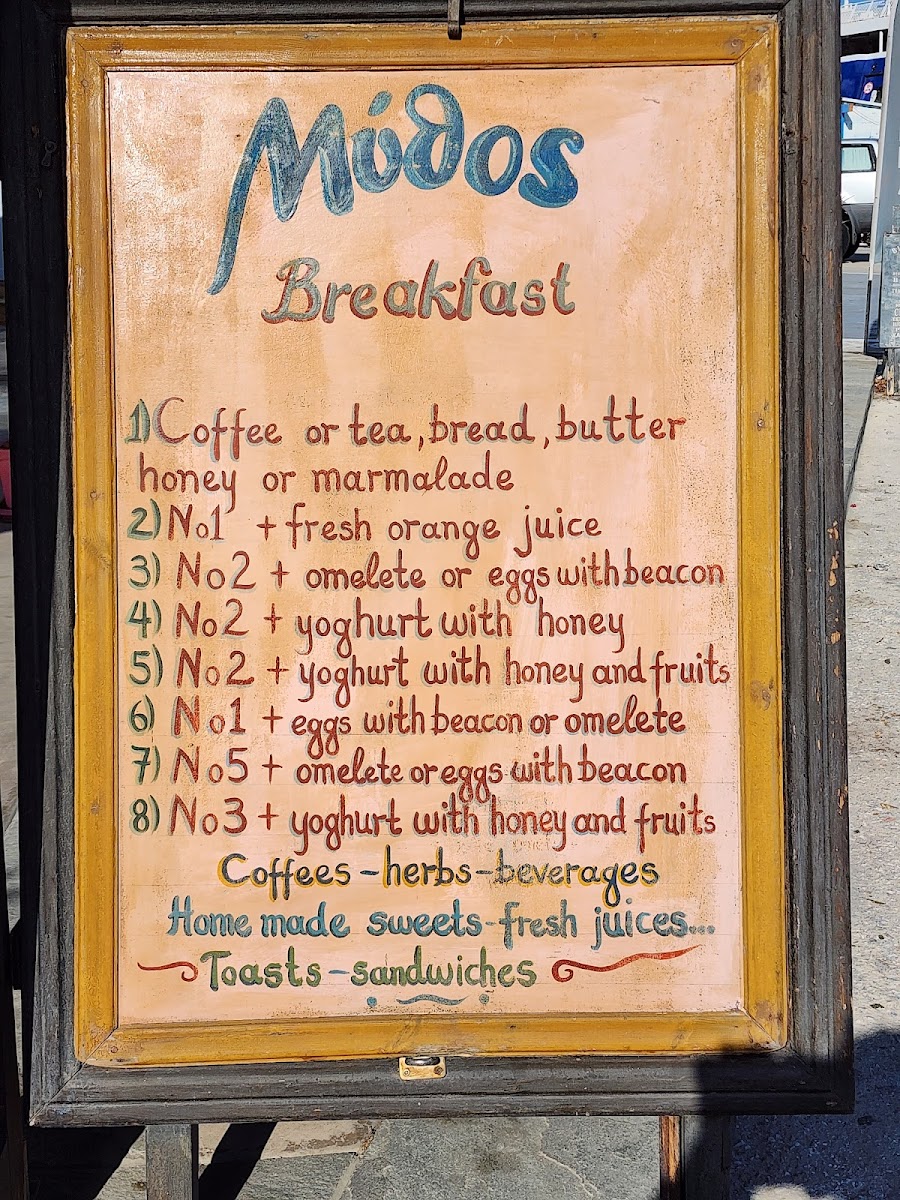 Μύθος
Breakfast
1) Coffee or tea, bread, butter
honey or marmalade
2) No1 + fresh orange juice
3) No2 + omelete or eggs with beacon
4) No2 + yoghurt with honey
5) No2 + yoghurt with honey and fruits
6) No1 + eggs with beacon or omelete
7) No5 + omelete or eggs with beacon
8) No3 + yoghurt with honey and fruits
Coffees - herbs - beverages
Home made sweets - fresh juices...
Toasts - sandwiches